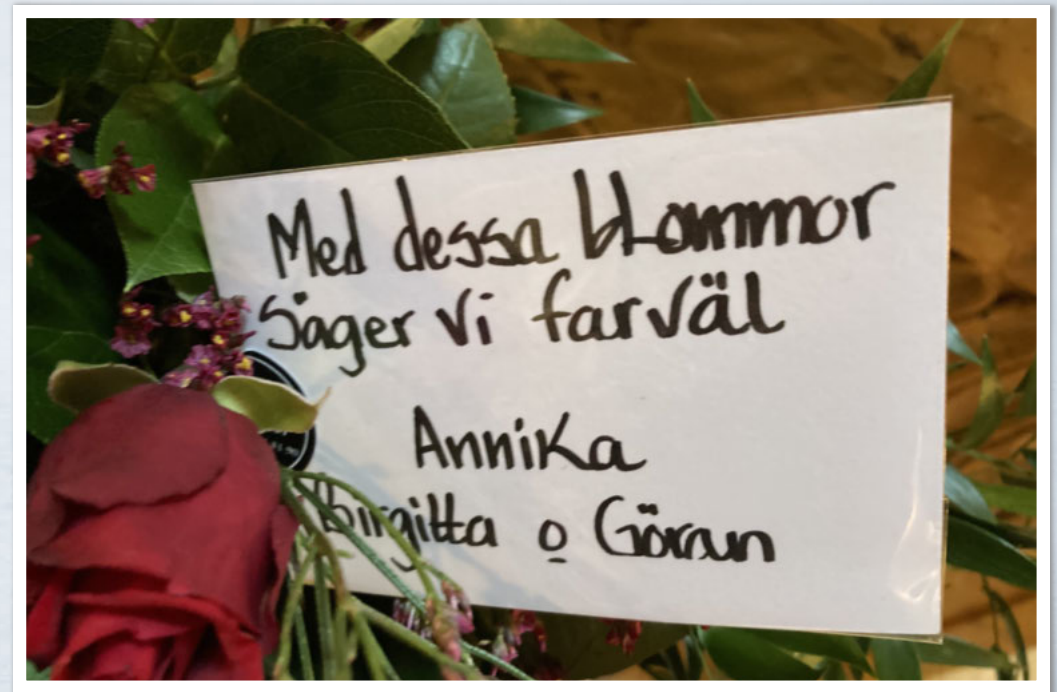 Med dessa blommor
säger vi farväl
Annika
Birgitta o Göran